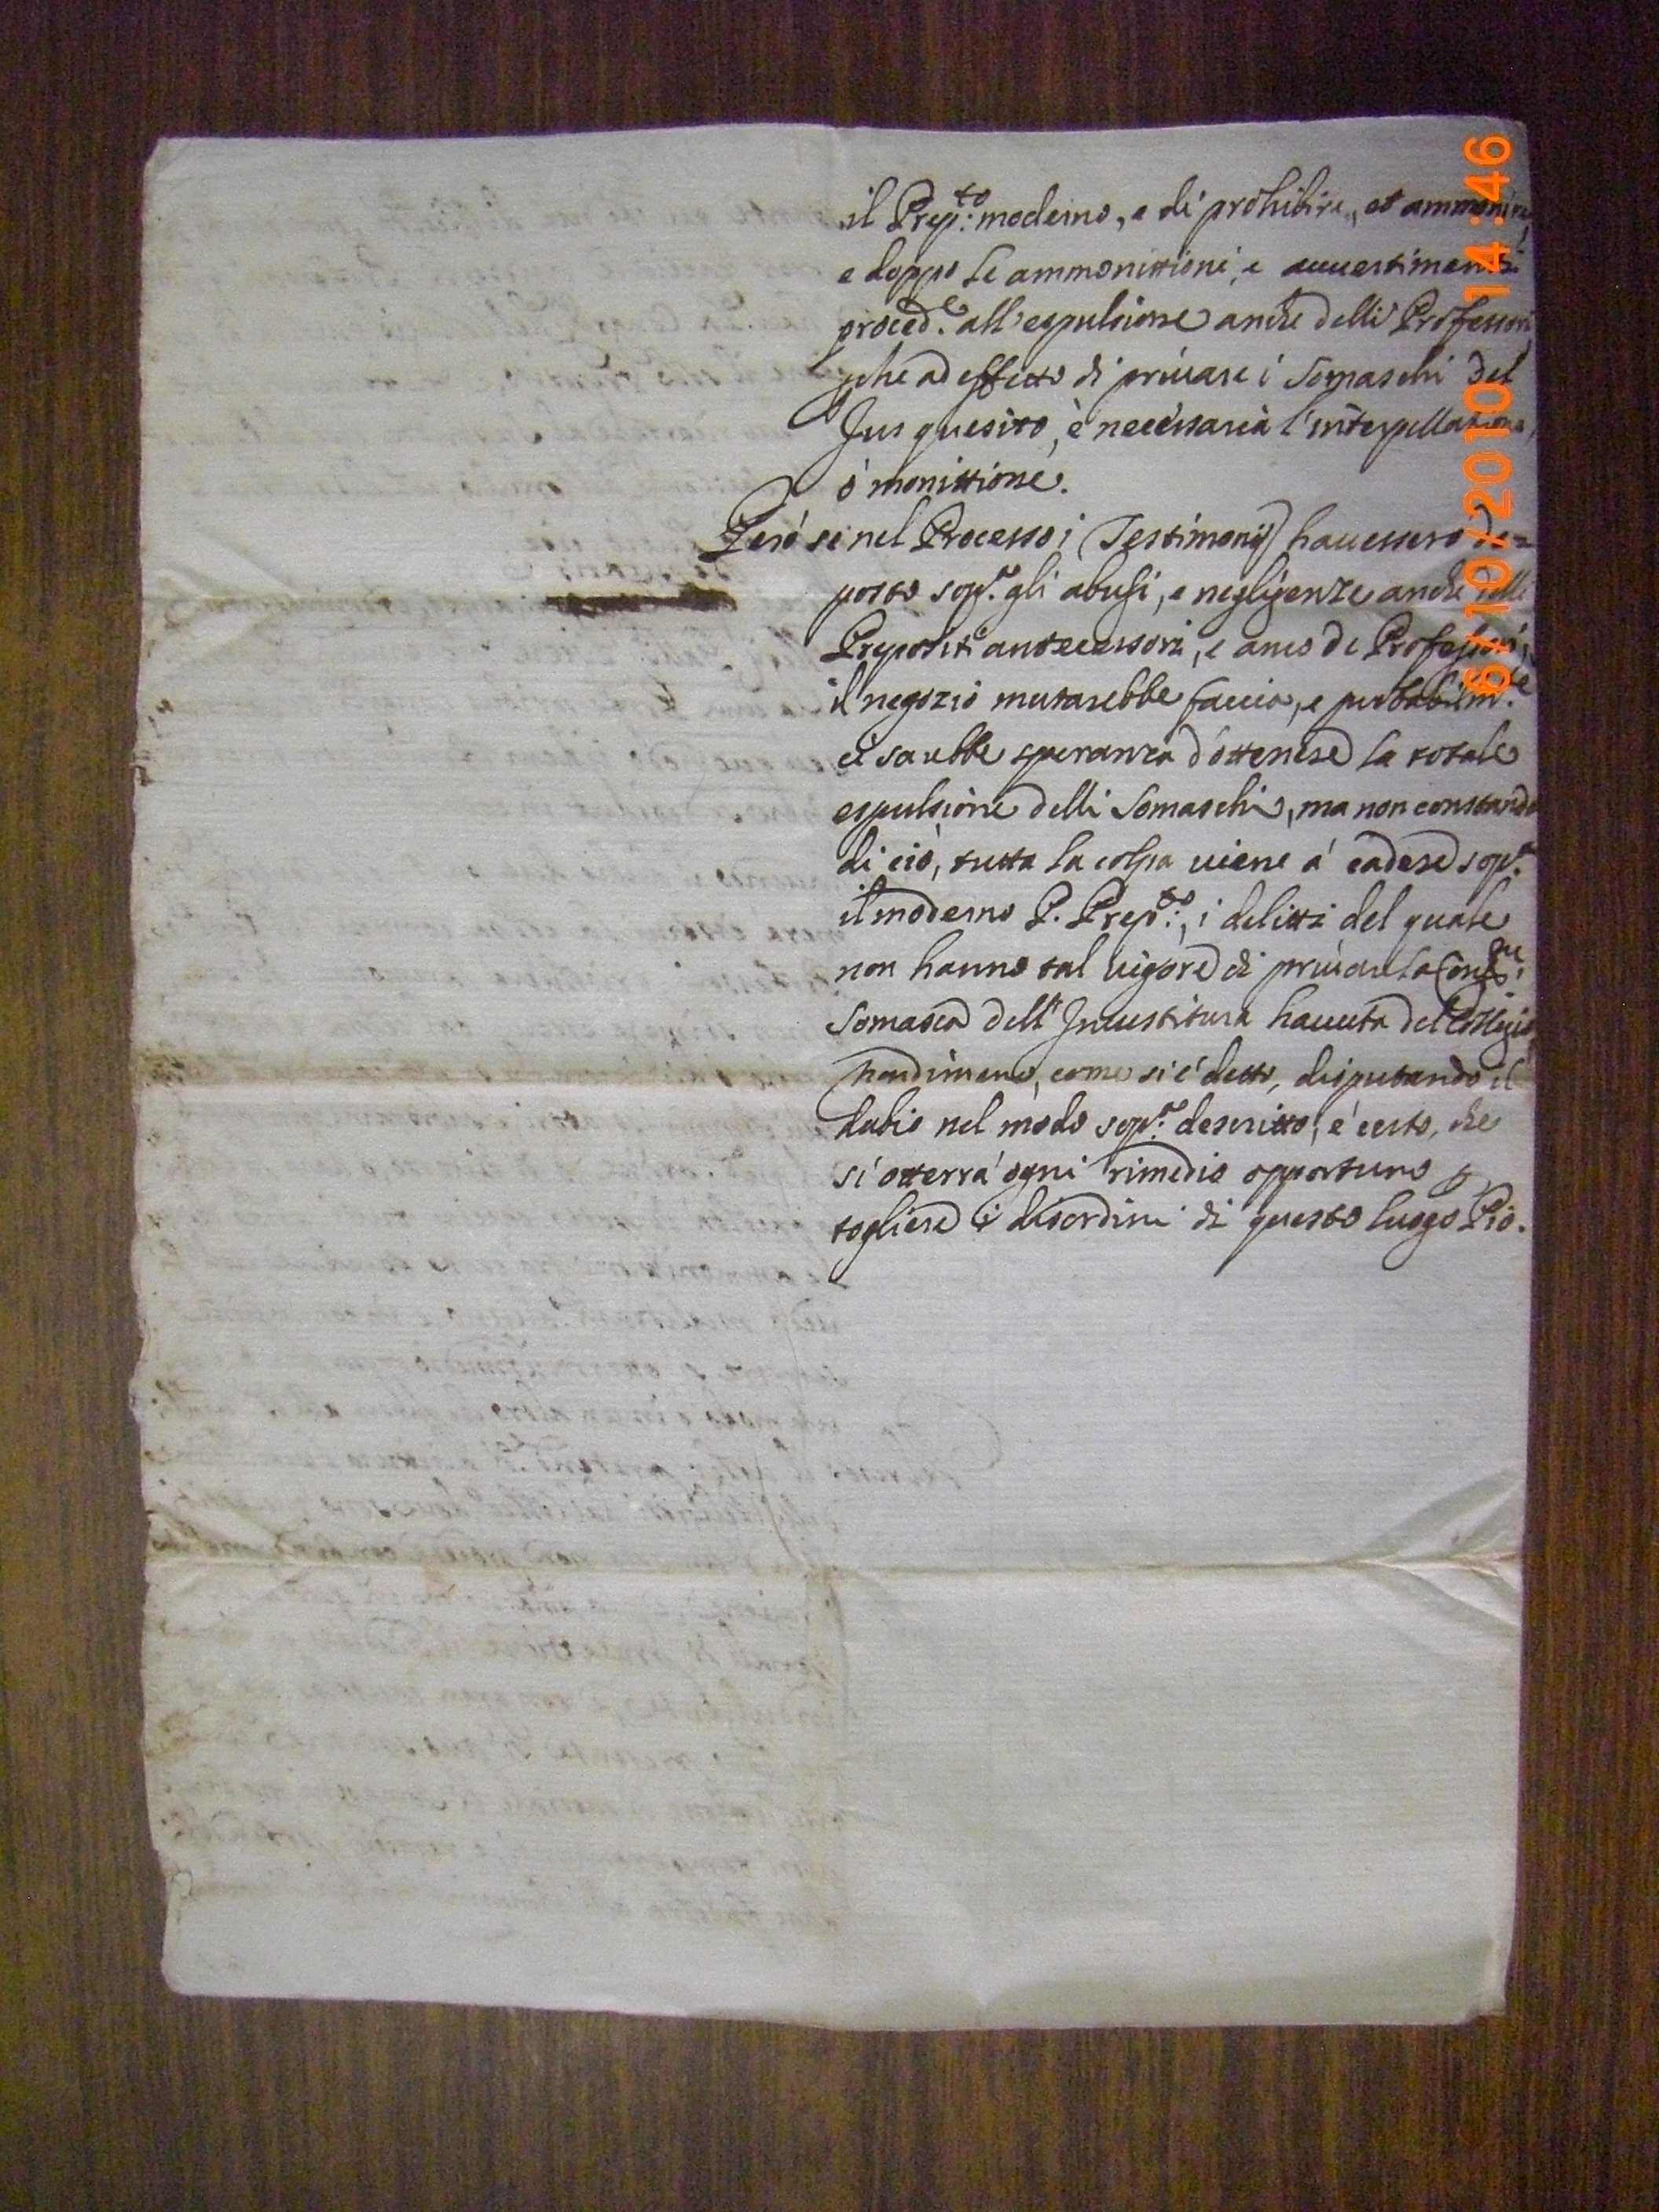 il Prep.to moderno, e di prohibire, et ammonire,
e doppo le ammonittioni, e auuertimenti
proced.e all'espulsione anche delli Professori,
perche ad effetto di priuare i Somaschi del
Jus quesito, è necessaria l'interpellatione,
ò monittione.
Però se nel Processo i Testimonij hauessero de=
posto sop.a gli abusi, e negligenze anche delli
Prepositi antecessori, e anco de Professori,
il negozio mutarebbe faccia, e probabilm.te
ci sarebbe speranza d'ottenere la totale
espulsione delli Somaschi, ma non constando
di ciò, tutta la colpa uiene à cadere sop.a
il moderno P. Prep.to, i delitti del quale
non hanno tal uigore di priuare la Cong.ne
Somasca dell'Inuestitura hauuta del Collegio
nondimeno, come si è detto, disputando il
dubio nel modo sop.a descritto, è certo, che
si otterrà ogni rimedio opportuno p
togliere i disordini di questo luogo Pio.
6/10/2010 14:46